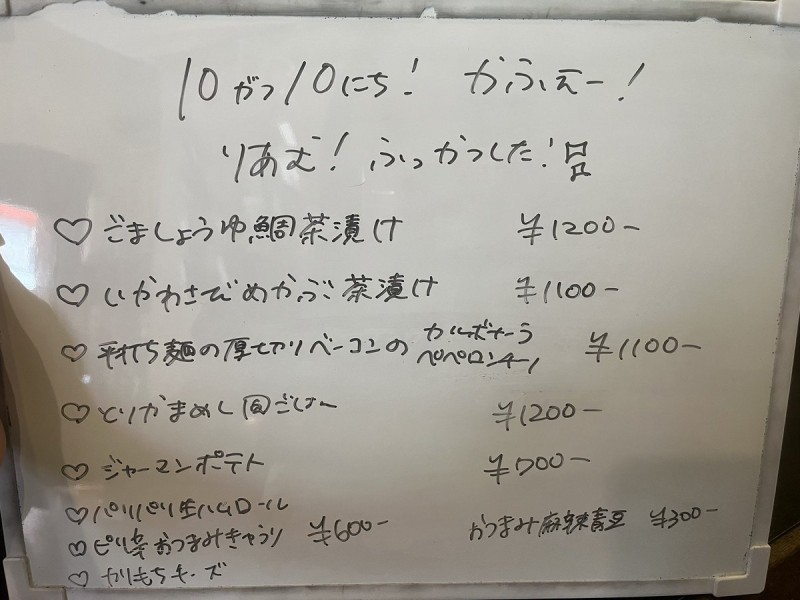 10がつ10にち! かふぇー!
りあむ! ふっかつした!
♡ごましょうゆ鯛茶漬け ¥1200-
♡いかわさびめかぶ茶漬け ¥1100-
♡平打ち麺の厚切りベーコンの カルボナーラ ペペロンチーノ ¥1100-
♡とりかまめし風ごはん ¥1200-
♡ジャーマンポテト ¥700-
♡パリパリ生ハムロール
♡ピリ辛おつまみきゅうり ¥600- おつまみ麻辣青豆 ¥300-
♡かりもちチーズ